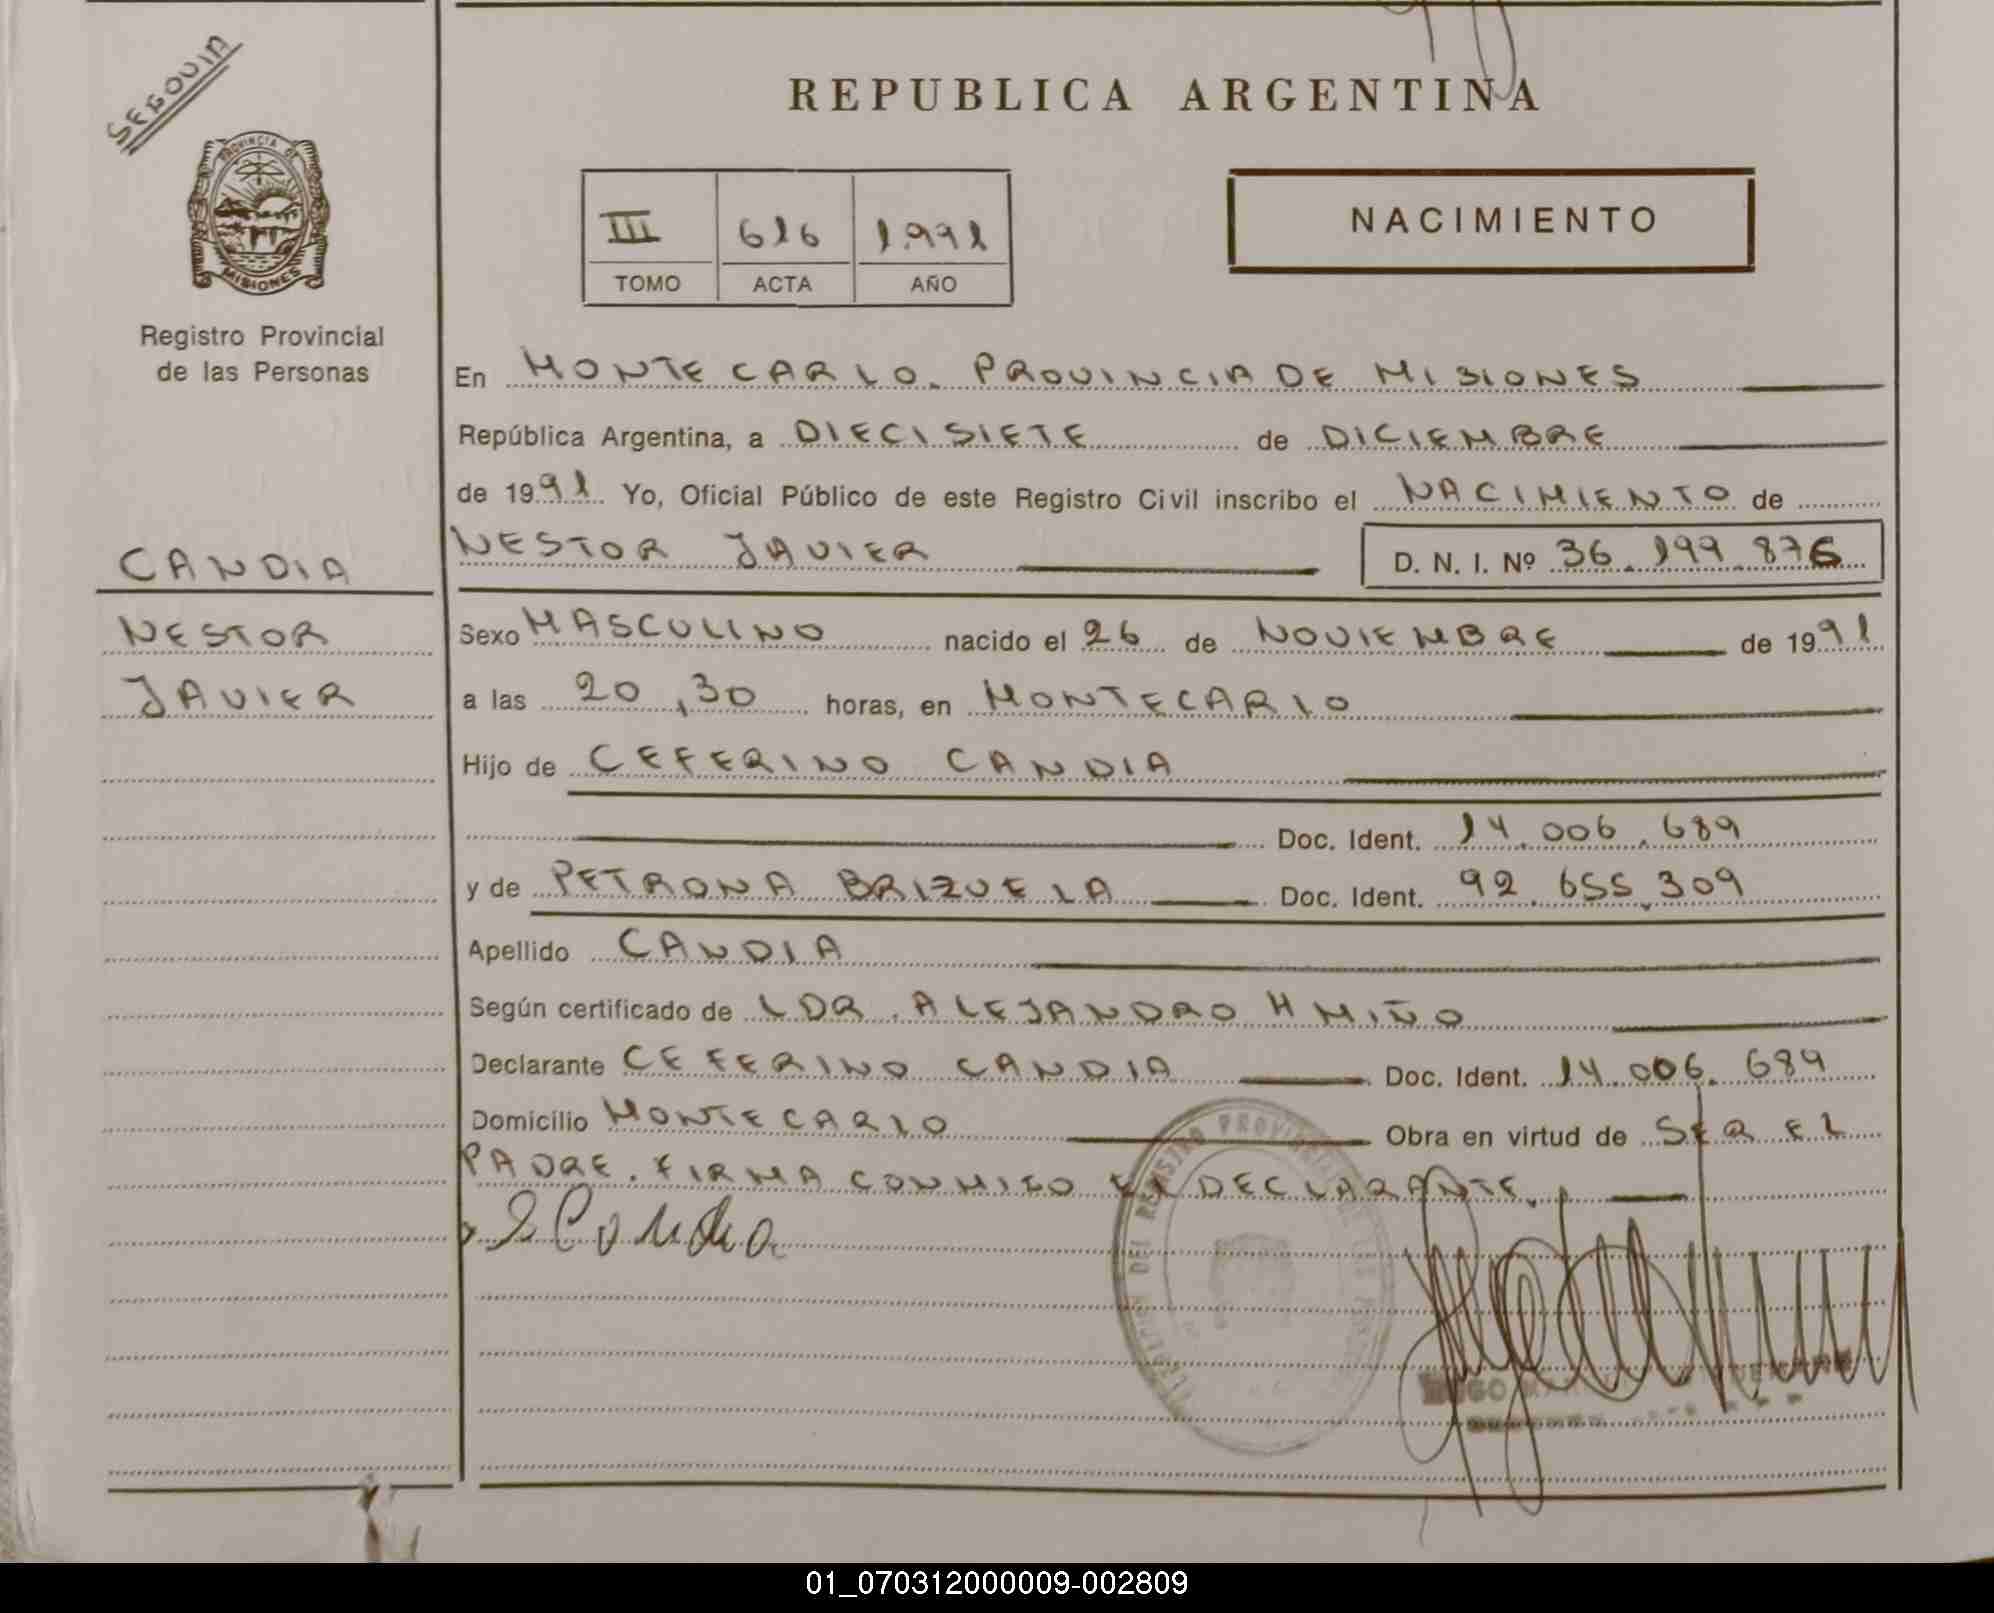 SEGOVIA
PROVINCIA DE
MISIONES
Registro Provincial
de las Personas
CANDIA
NESTOR
JAVIER
REPUBLICA ARGENTINA
III 616 1.991
TOMO ACTA AÑO
NACIMIENTO
En MONTECARLO. PROVINCIA DE MISIONES
República Argentina, a DIECISIETE de DICIEMBRE
de 1991 Yo, Oficial Público de este Registro Civil inscribo el NACIMIENTO de
NESTOR JAVIER D. N. I. Nº 36.199.876
Sexo MASCULINO nacido el 26 de NOVIEMBRE de 1991
a las 20,30 horas, en MONTECARLO
Hijo de CEFERINO CANDIA
Doc. Ident. 14.006.689
y de PETRONA BRIZUELA Doc. Ident. 92.655.309
Apellido CANDIA
Según certificado de LDR. ALEJANDRO H MIÑO
Declarante CEFERINO CANDIA Doc. Ident. 14.006.689
Domicilio MONTECARLO Obra en virtud de SER EL
PADRE. FIRMA CONMIGO EL DECLARANTE.
Candia
DEL REGISTRO PROVINCIAL DE LAS
HUGO
01_070312000009-002809